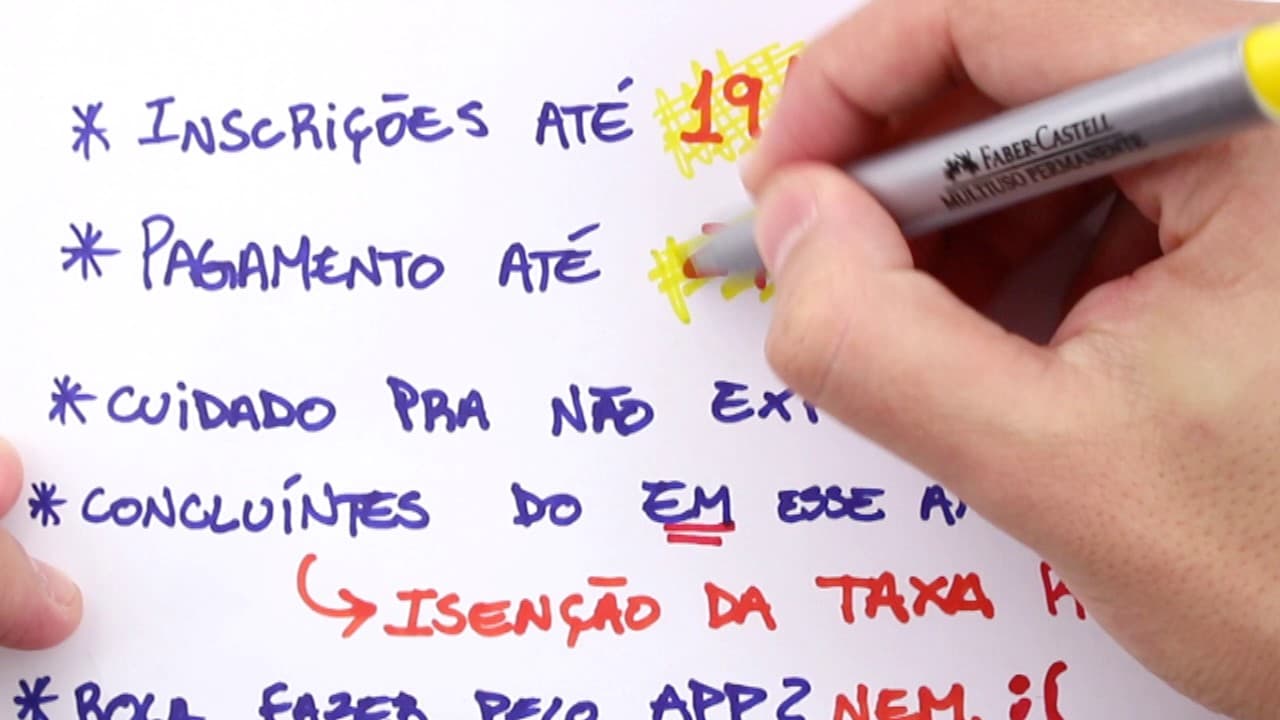 * INSCRIÇÕES ATÉ 19
* PAGAMENTO ATÉ
* CUIDADO PRA NÃO
* CONCLUÍNTES DO EM ESSE
ISENÇÃO DA TAXA
* ROLA FAZER PELO APP? NEM. :(
FABER-CASTELL
MULTIUSO PERMANENTE